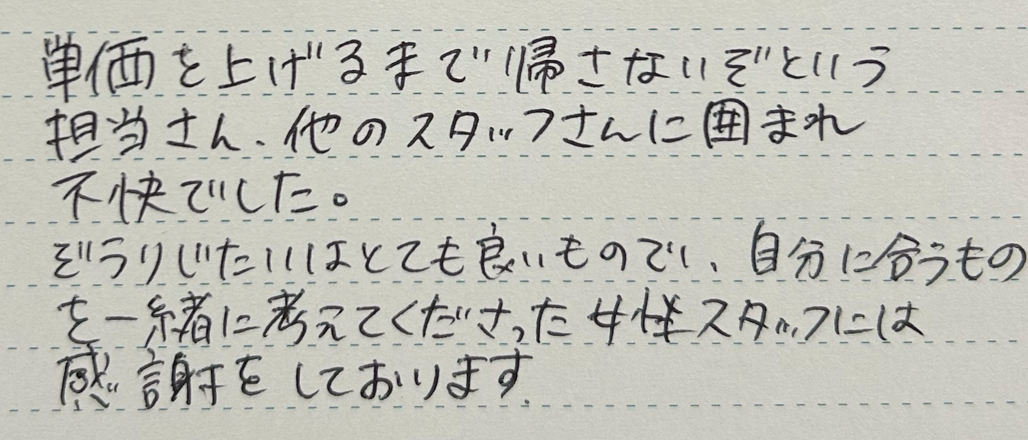 単価を上げるまで帰さないぞという
担当さん、他のスタッフさんに囲まれ
不快でした。
ぞうりじたいはとても良いもので、自分に合うもの
を一緒に考えてくださった女性スタッフには
感謝をしております